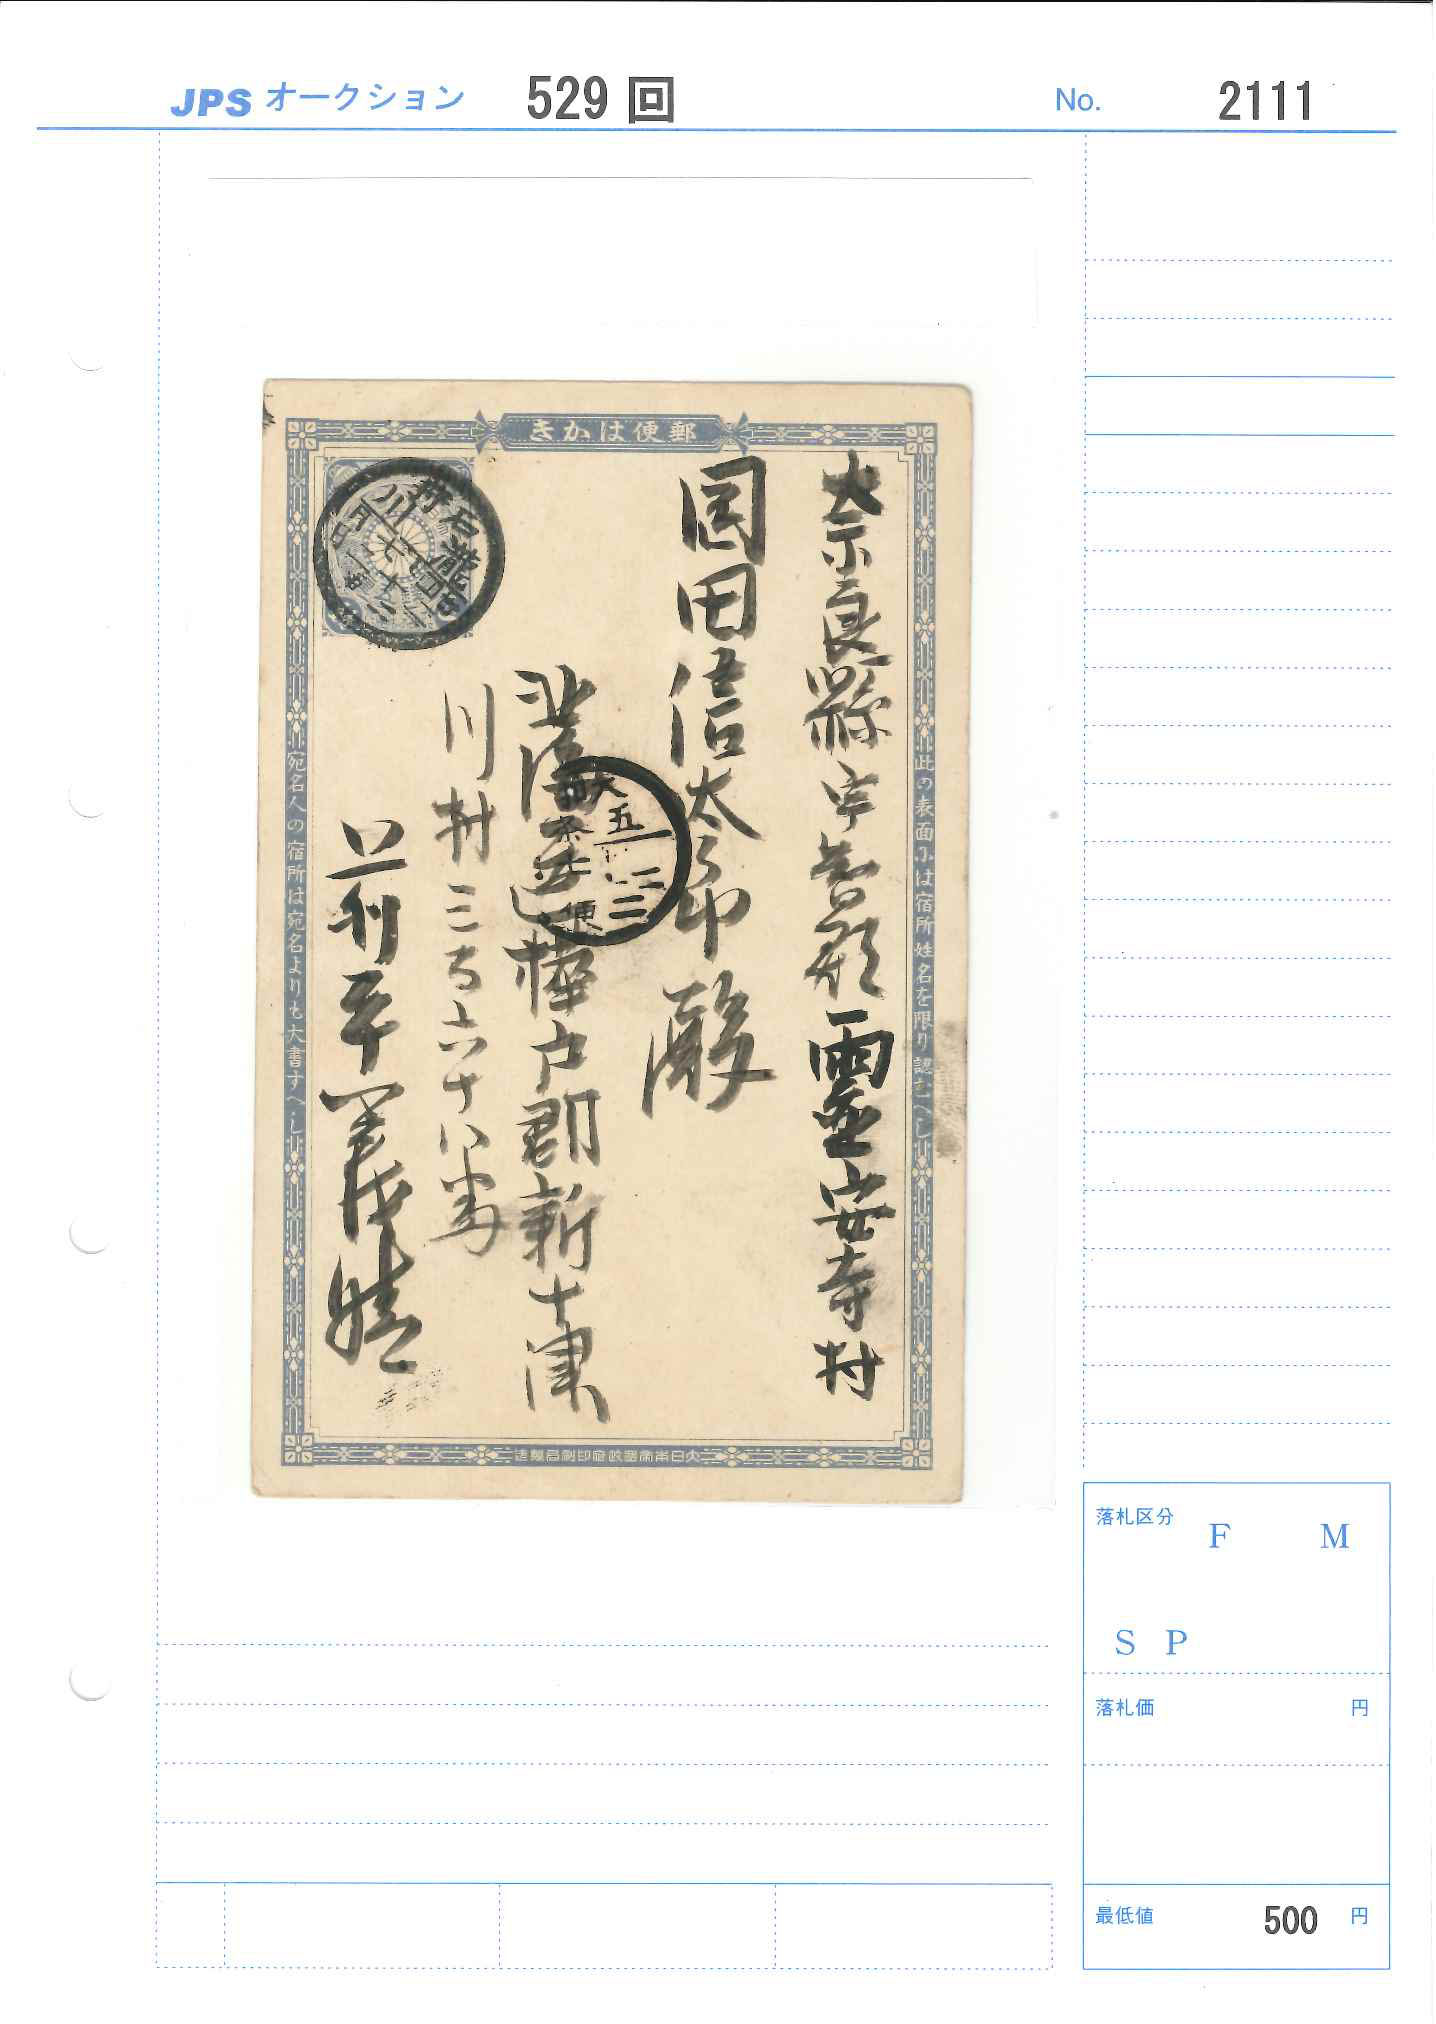 JPS オークション 529 回 No. 2111
郵便はかき
奈良縣宇智郡靈安寺村
岡田信太郎殿
北海道樺戸郡新十津
川村三百六十八番
上村平
此の表面には宿所姓名を限り認むへし
宛名人の宿所は宛名よりも大書すへし
大日本帝國政府印刷局製造
落札区分 F M
S P
落札価 円
最低値 500 円